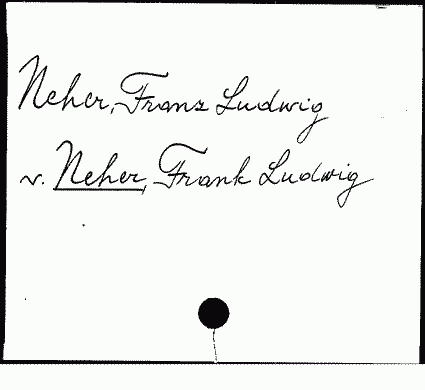 Neher, Franz Ludwig
v. Neher, Frank Ludwig